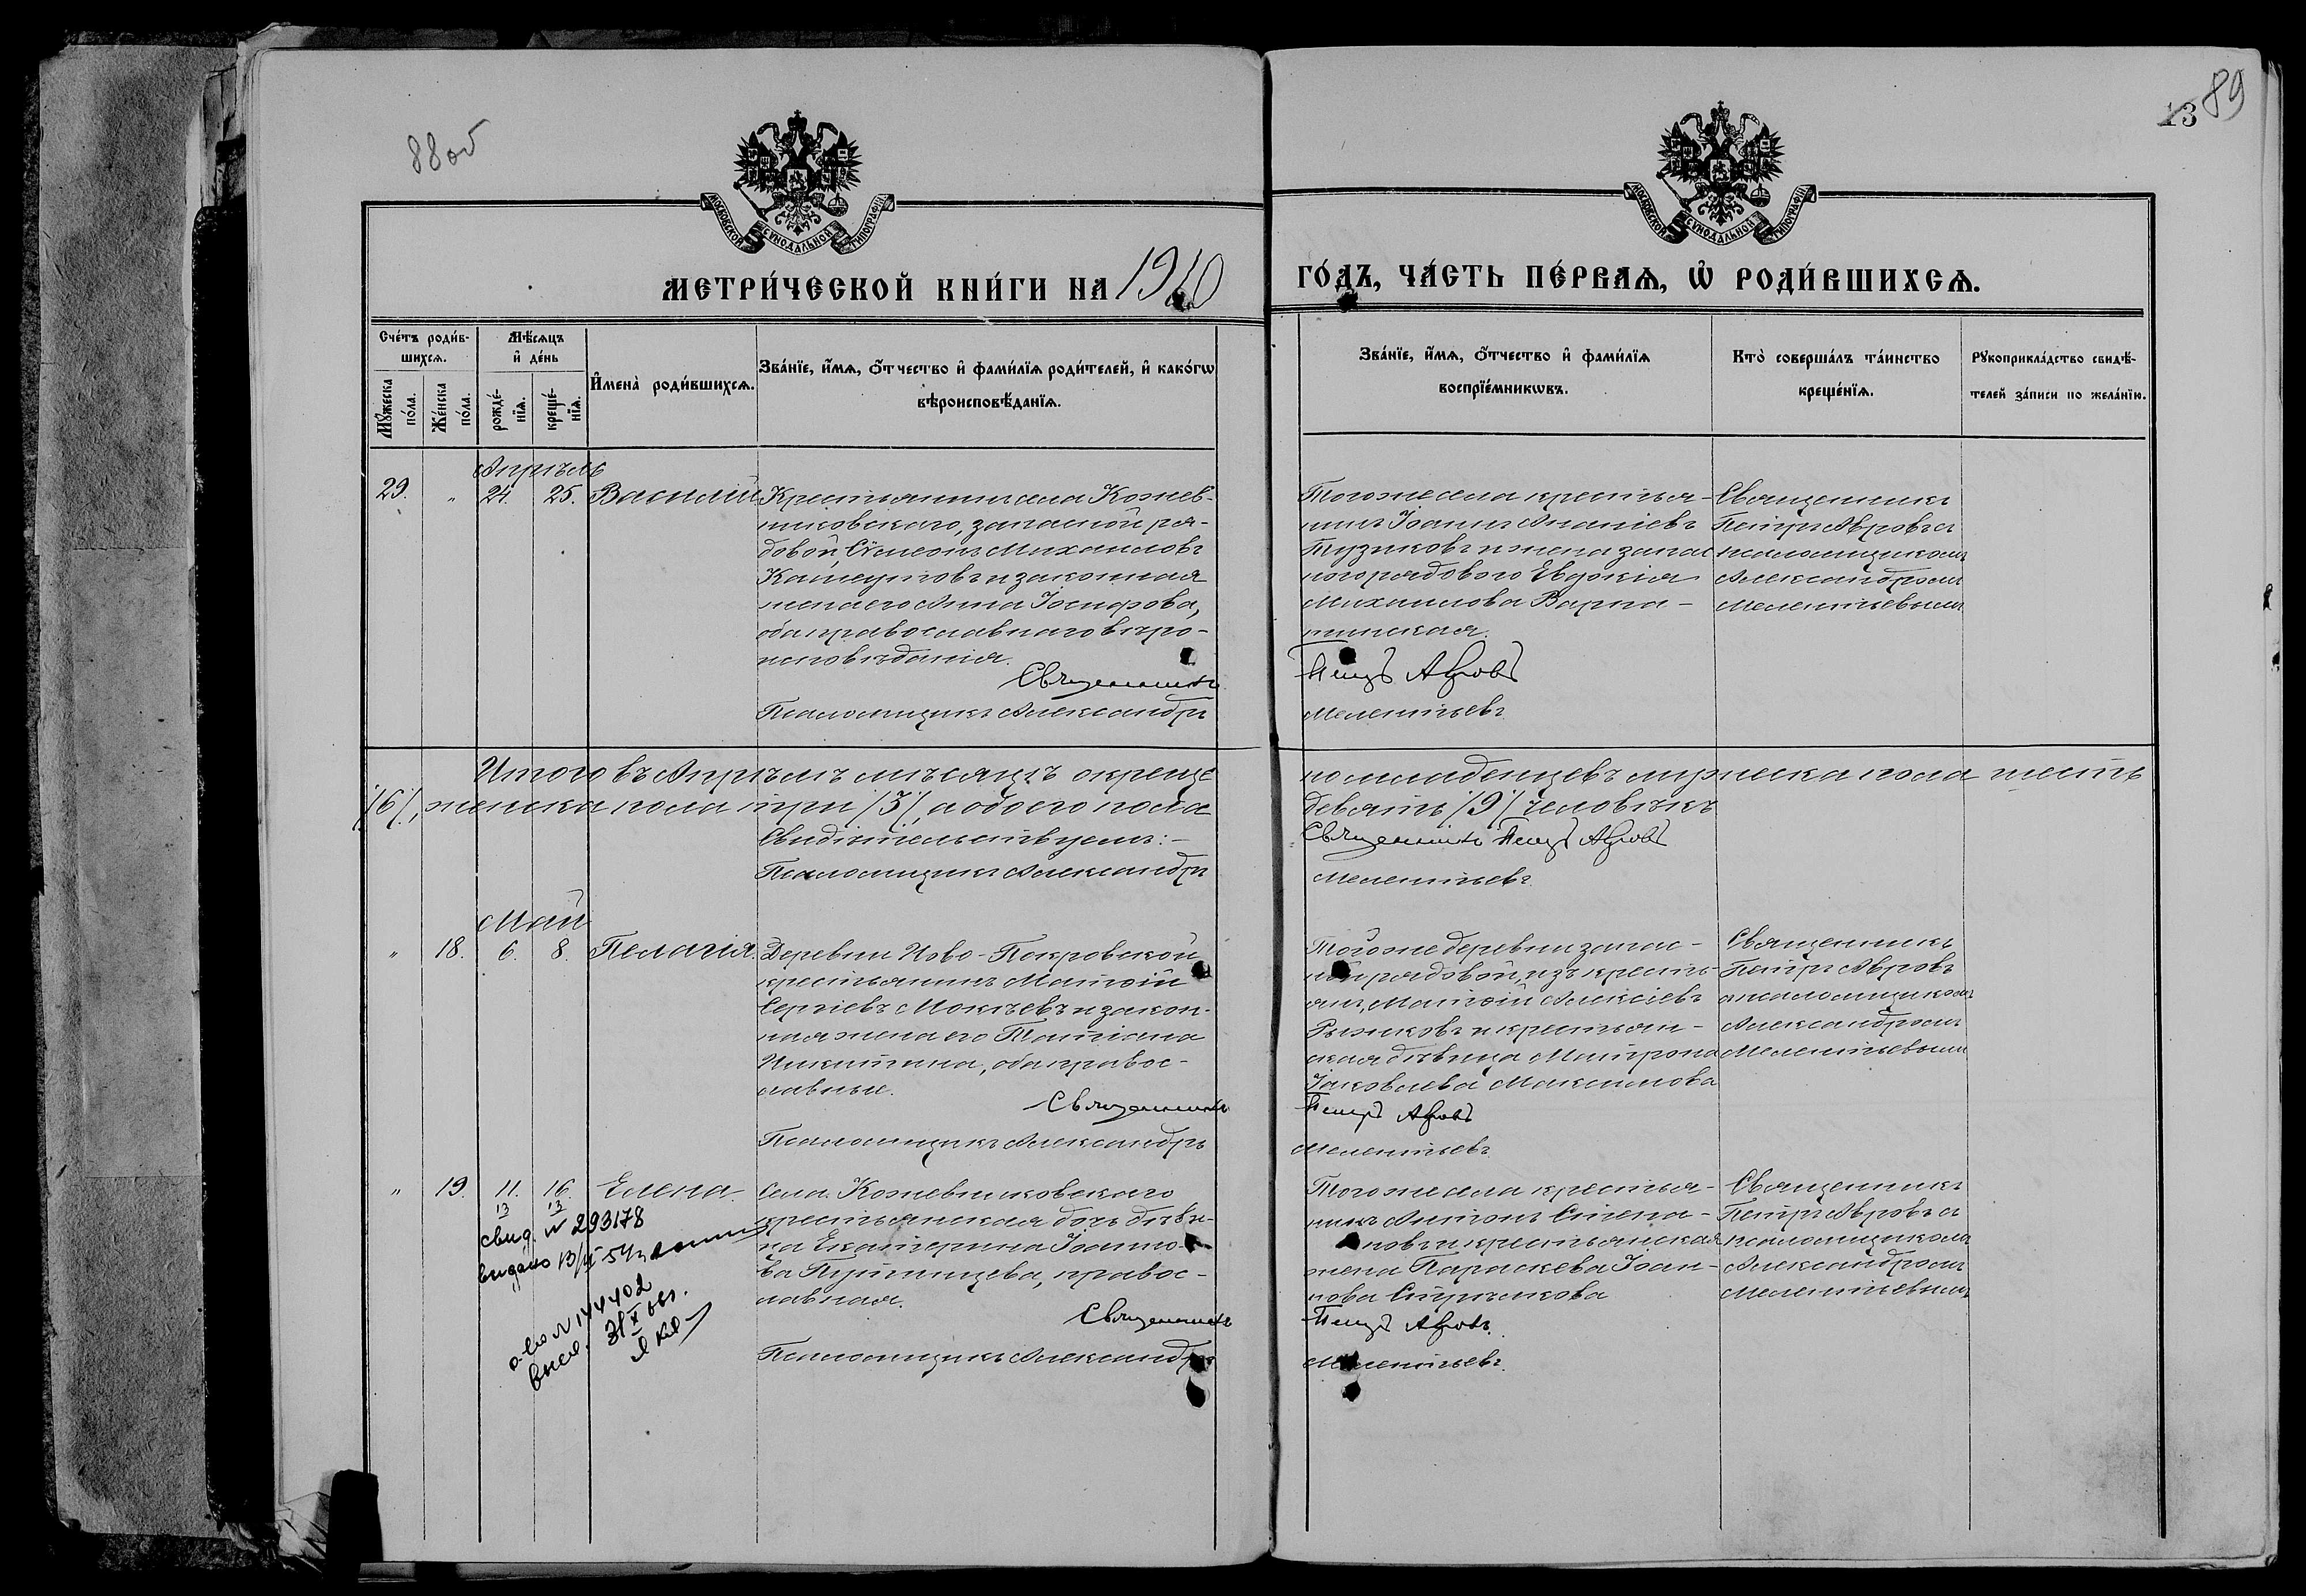 88об
13 89
МОСКОВСКОЙ СѴНОДАЛЬНОЙ ТИПОГРАФІИ
МОСКОВСКОЙ СѴНОДАЛЬНОЙ ТИПОГРАФІИ
МЕТРИ́ЧЕСКОЙ КНИ́ГИ НА 1910
ГО́ДЪ, ЧА́СТЬ ПЕ́РВАѦ, Ѡ҆ РОДИ́ВШИХСѦ.
Сче́тъ роди́в-
шихсѧ.
Мꙋ́жеска
по́ла.
Же́нска
по́ла.
Мѣ́сѧцъ
и҆ де́нь
рожде́-
нїѧ.
креще́-
нїѧ.
И҆мена̀ роди́вшихсѧ.
Зва́нїе, и҆́мѧ, ѻ҆́тчество и҆ фами́лїѧ роди́телей, и҆ како́гѡ
вѣроисповѣ́данїѧ.
Зва́нїе, и҆́мѧ, ѻ҆́тчество и҆ фами́лїѧ
воспрїе́мникѡвъ.
Кто̀ соверша́лъ та́инство
креще́нїѧ.
Рꙋкоприкла́дство свидѣ́-
телей за́писи по жела́нїю.
Апрѣль
29. " 24. 25. Василій
Крестьянинъ села Кожев-
никовскаго, запасной ря-
довой, Сѵмеонъ Михаиловъ
и законная
жена его Анна Іосифова,
оба православнаго вѣро-
исповѣданія.
Священникъ
Псаломщикъ Александръ
Того же села крестья-
нинъ Іоаннъ Ананіевъ
Тузиковъ и жена запас
ного рядового Евдокія
Михаилова Варна-
Петръ Авровъ
Мелентьевъ
Священникъ
Петръ Авровъ съ
псаломщикомъ
Александромъ
Мелентьевымъ
Итого въ Апрѣлѣ мѣсяцѣ окреще
но младенцевъ мужеска пола шесть
/6/, женска пола три /3/, а обоего пола
девять /9/ человѣкъ
Свидѣтельствуемъ:-
Священникъ Петръ Авровъ
Псаломщикъ Александръ
Мелентьевъ
Май
" 18. 6. 8. Пелагія.
Деревни Ново-Покровской
крестьянинъ Матѳій
Сергіевъ Мокѣевъ и закон-
ная жена его Татіана
Никитина, оба правос-
лавные.
Священникъ
Псаломщикъ Александръ
Той же деревни запас-
ный рядовой, изъ кресть-
янъ, Матѳій Алексіевъ
Рыжковъ и крестьян-
ская дѣвица Матрона
Іаковлева Максимова
Петръ Авровъ
Мелентьевъ
Священникъ
Петръ Авровъ
с псаломщикомъ
Александромъ
Мелентьевымъ
" 19. 11. 16. Елена
13 13
свид. № 293178
выдано
№ 144402
Села Кожевниковскаго
крестьянская дочь дѣви-
ца Екатерина Іоанно-
ва правос-
лавная.
Священникъ
Псаломщикъ Александръ
Того же села крестья-
нинъ Антонъ Степа-
новъ и крестьянская
жена Параскева Іоан-
нова Стрѣлкова
Петръ Авровъ.
Мелентьевъ.
Священникъ
Петръ Авровъ съ
псаломщикомъ
Александромъ
Мелентьевымъ